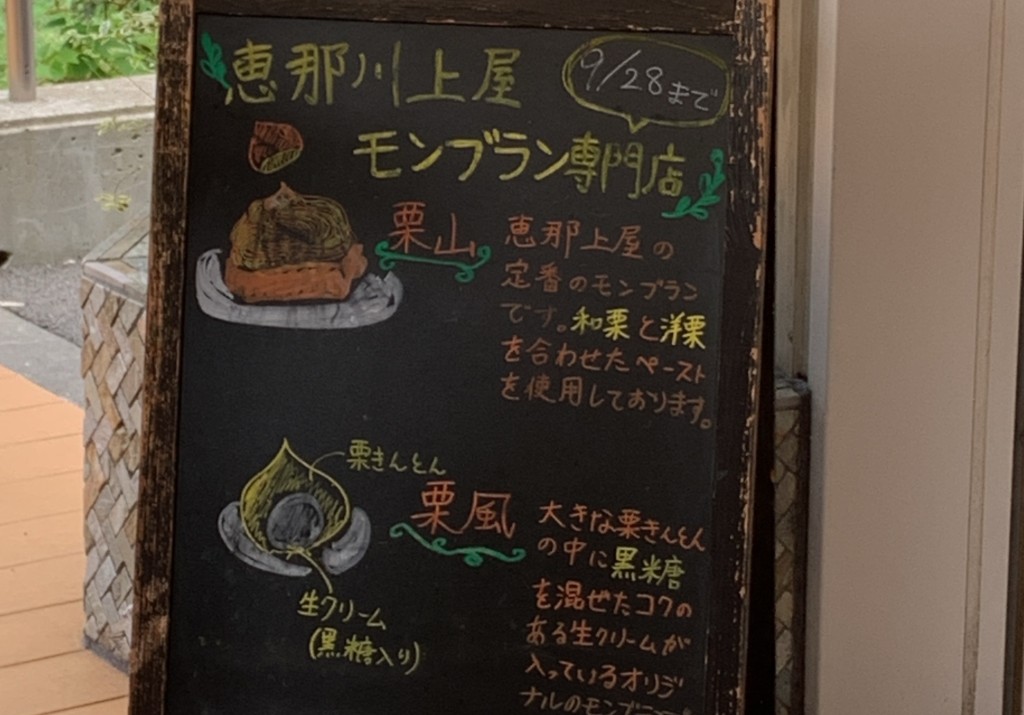 恵那川上屋
9/28まで
モンブラン専門店
栗山
恵那上屋の
定番のモンブラン
です。和栗と洋栗
を合わせたペースト
を使用しております。
栗きんとん
栗風
大きな栗きんとん
の中に黒糖
を混ぜたコクの
ある生クリームが
入っているオリジ
ナルのモンブ
生クリーム
(黒糖入り)